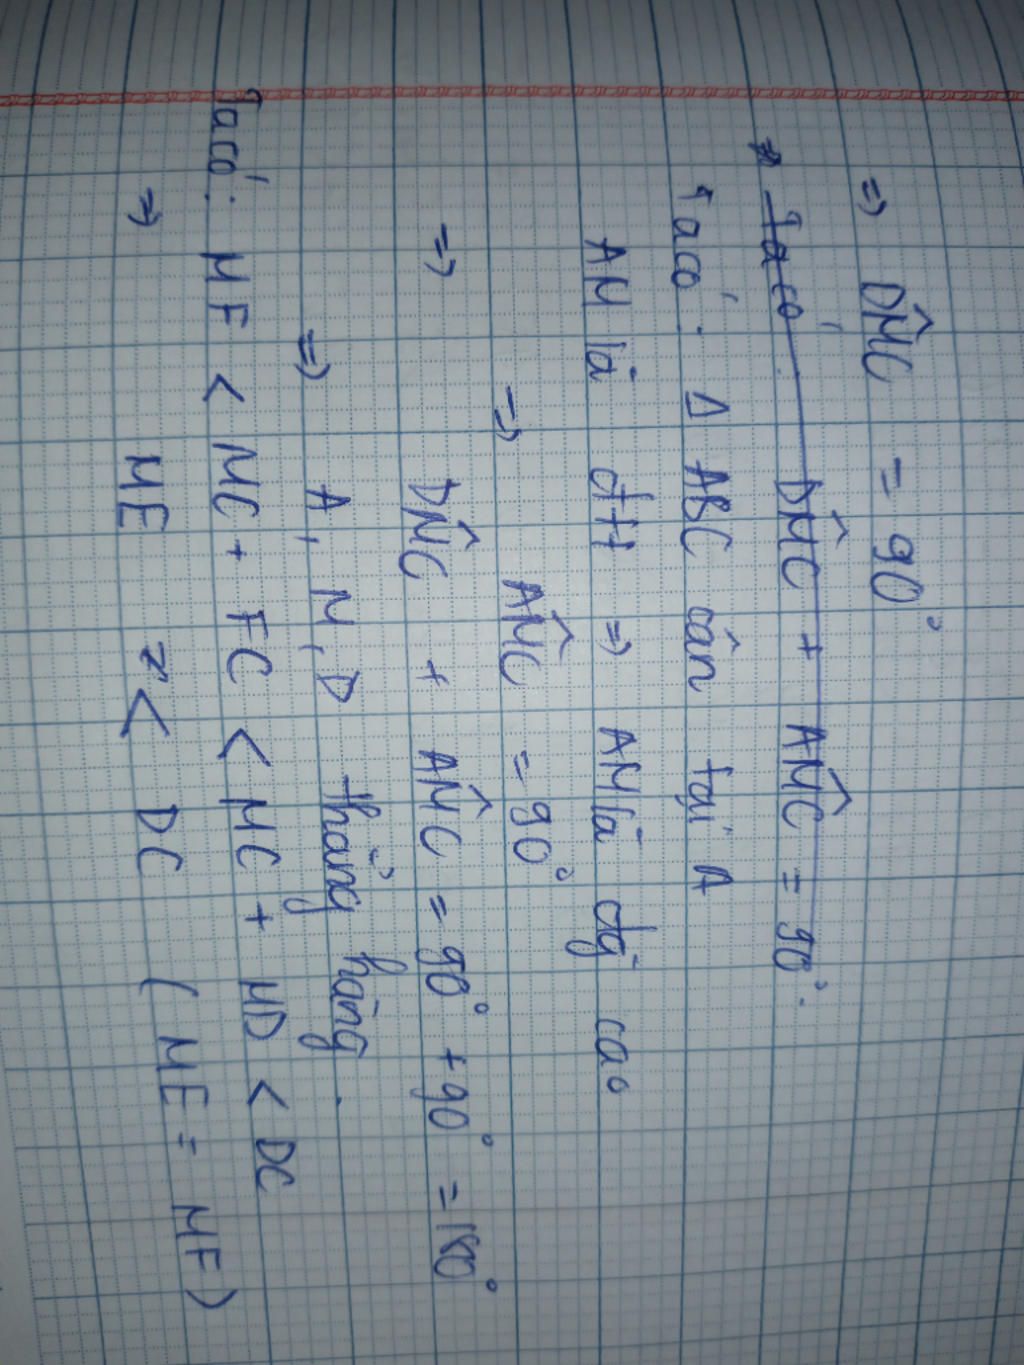 => DM̂C = 90°
=> Ta có: DM̂C + AM̂C = 90°.
Ta có: Δ ABC cân tại A
AM là đtt => AM là đg cao
=> AM̂C = 90°
=> DM̂C + AM̂C = 90° + 90° = 180°
=> A, M, D thẳng hàng.
Ta có: MF < MC + FC < MC + MD < DC
=> ME < DC (ME = MF)